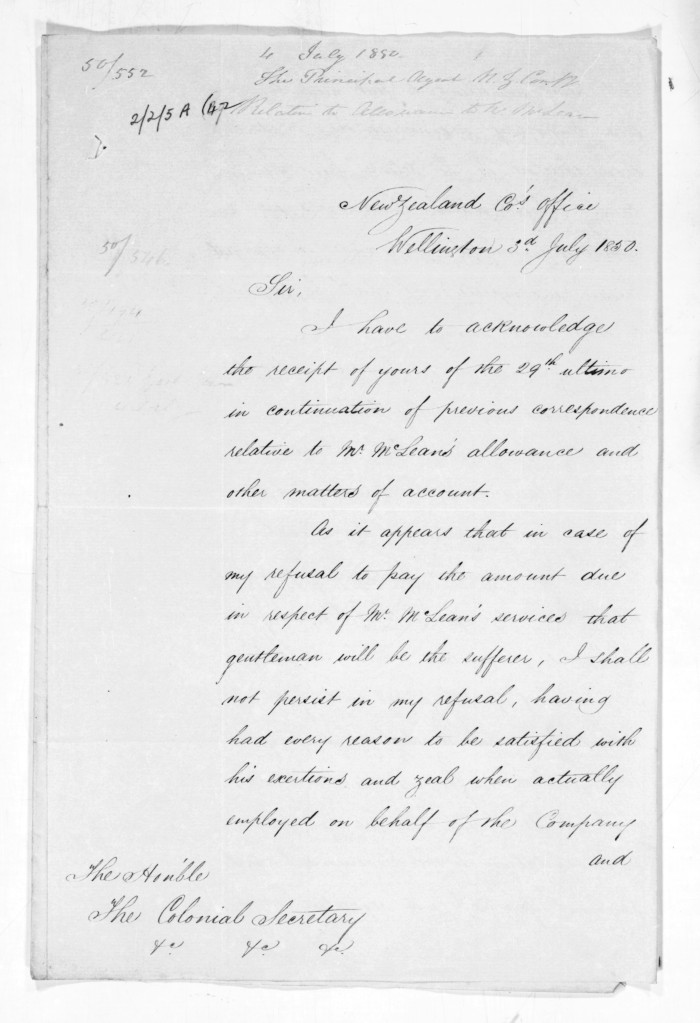 50/552
4 July 1850.
The Principal Agent N Z Compy
2/2/5A (47
Relative to Allowance to Mr McLean
New Zealand Co's. Office
Wellington 3d. July 1850.
50/546
Sir,
I have to acknowledge
the receipt of yours of the 29th ultimo
in continuation of previous correspondence
relative to Mr. McLean's allowance and
other matters of account.
As it appears that in case of
my refusal to pay the amount due
in respect of Mr. McLean's services that
gentleman will be the sufferer, I shall
not persist in my refusal, having
had every reason to be satisfied with
his exertions and zeal when actually
employed on behalf of the Company
and
The Hon'ble
The Colonial Secretary
&c. &c. &c.